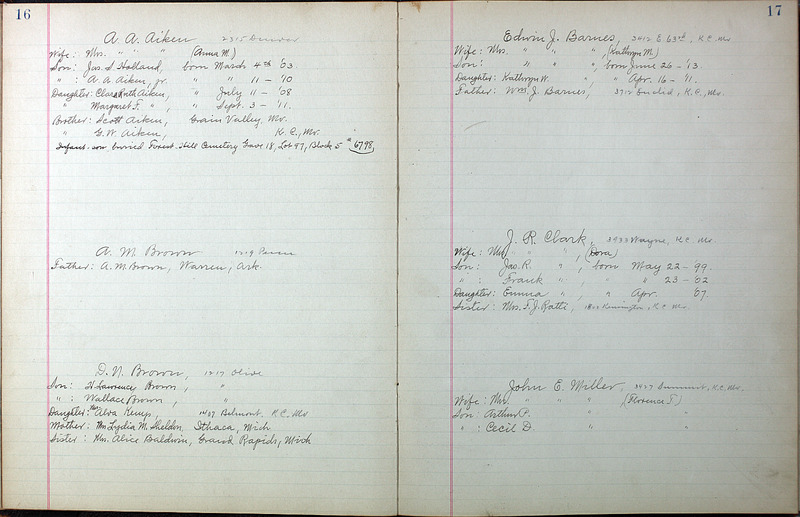 16
A. A. Aiken 2315 Denver
Wife: Mrs. " " " (Anna M.)
Son: Jas. S. Holland, born March 4th '03
" : A. A. Aiken, jr. " " 11 - '10
Daughter: Clara Ruth Aiken, " July 11 - '08
" Margaret F. " , " Sept. 3 - '11.
Brother: Scott Aiken, Grain Valley, Mo.
" G. W. Aiken, K. C., Mo.
Infant son buried Forest Hill Cemetery Grave 18, Lot 97, Block 5 # 6798
A. M. Brown 1219
Father: A. M. Brown, Warren, Ark.
D. N. Brown, 1217 Olive
Son: H Lawrence Brown, "
" : Wallace Brown, "
Daughter: Mrs Alva Kemp, 1407 Belmont, K.C., Mo
Mother: Mrs Lydia M. Sheldon, Ithaca, Mich
Sister: Mrs. Alice Baldwin, Grand Rapids, Mich
17
Edwin J. Barnes, 3412 E 63rd, K.C. Mo
Wife: Mrs. " " " , (Kathryn M.)
Son: " " " , born June 26 - '13.
Daughter: Kathryn W. " , " Apr. 16 - '11.
Father: Wm. J. Barnes, 3712 Euclid, K.C., Mo.
J. R. Clark, 3933 Wayne, K.C. Mo
Wife: Mrs " " " , (Dora)
Son: Jas. R. " , born May 22 - '99.
" : Frank " , " " 23 - '02
Daughter: Emma " , " Apr. '07
Sister: Mrs. F. J. Ratti, K.C. Mo.
John E. Miller, 3427 Summit, K.C. Mo.
Wife: Mrs " " " (Florence T.)
Son: Arthur P. " "
" : Cecil D. " "